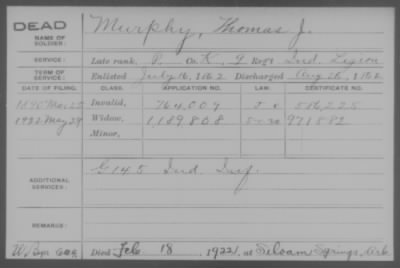 DEAD
NAME OF SOLDIER: Murphy, Thomas J.
SERVICE: Late rank, P. Co. K, 9 Reg't Ind. Legion
TERM OF SERVICE: Enlisted July 16, 1862 Discharged Aug 26, 1862
DATE OF FILING. CLASS. APPLICATION NO. LAW. CERTIFICATE NO.
1890 Mar 25 Invalid, 764,009 586,225
1922 May 29 Widow, 1,189,808 971882
Minor,
ADDITIONAL SERVICES: G 145 Ind. Inf.
REMARKS:
Died Feb 18 1922, at Siloam Springs, Ark